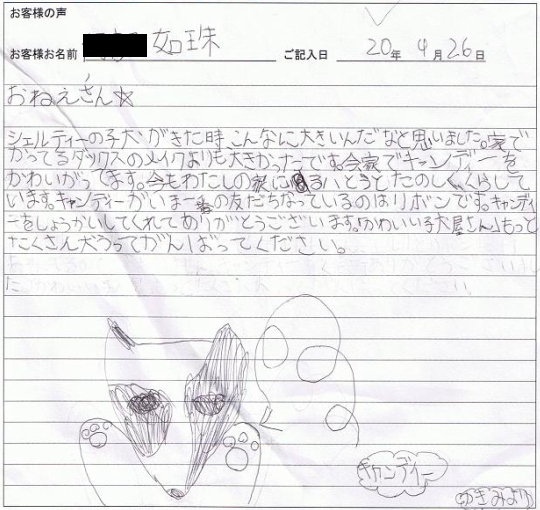 お客様の声
お客様お名前 如珠 ご記入日 20年 4月26日
おねえさん☆
シェルティーの子犬がきた時、こんなに大きいんだなと思いました。家で
かってるダックスのメイクよりも大きかったです。今家でキャンディーを
かわいがってます。今もわたしの家にいるいとうとたのしくくらして
います。キャンディーがいま一番の友だちなっているのはリボンです。キャンディ
ーをしょうかいしてくれてありがとうございます。「かわいい子犬屋さん」もっと
たくさん犬うってがんばってください。
キャンディー
ゆきみより